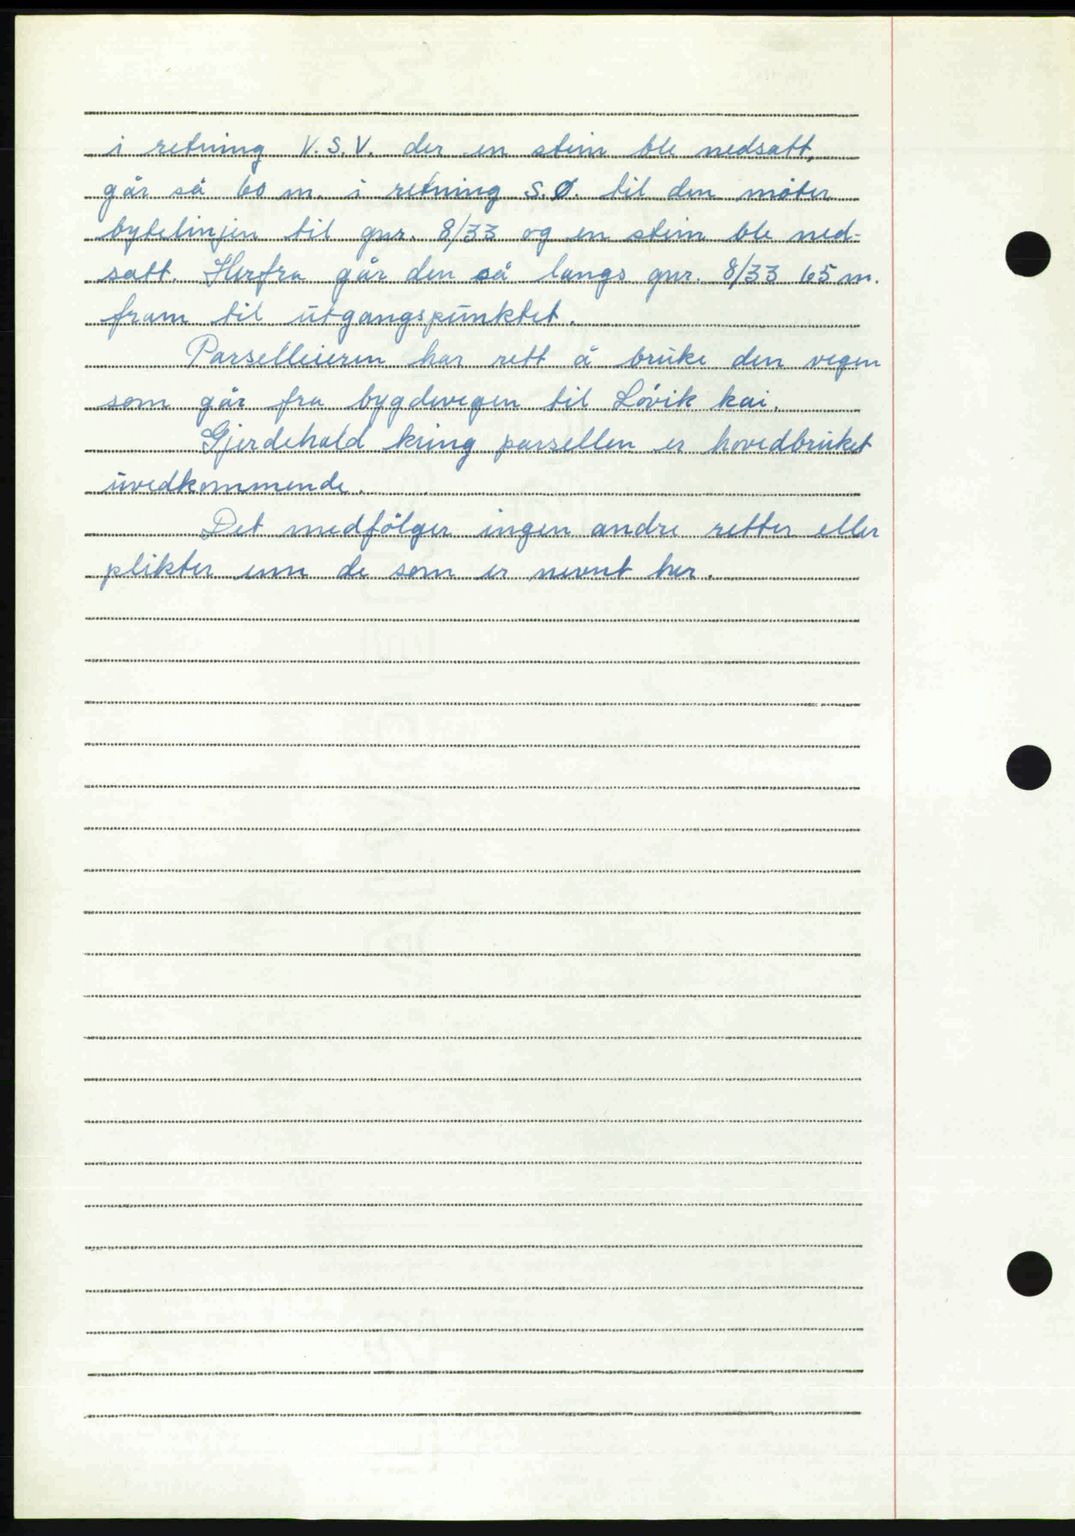 i retning V.S.V. der en stein ble nedsatt,
går så 60 m. i retning S.Ø. til den möter
bytelinjen til gnr. 8/33 og en stein ble ned-
satt. Herfra går den så langs gnr. 8/33 65 m.
fram til utgangspunktet.
Parselleieren har rett å bruke den vegen
som går fra bygdevegen til Lövik kai.
Gjerdehald kring parsellen er hovedbruket
uvedkommende.
Det medfölger ingen andre retter eller
plikter enn de som er nevnt her.